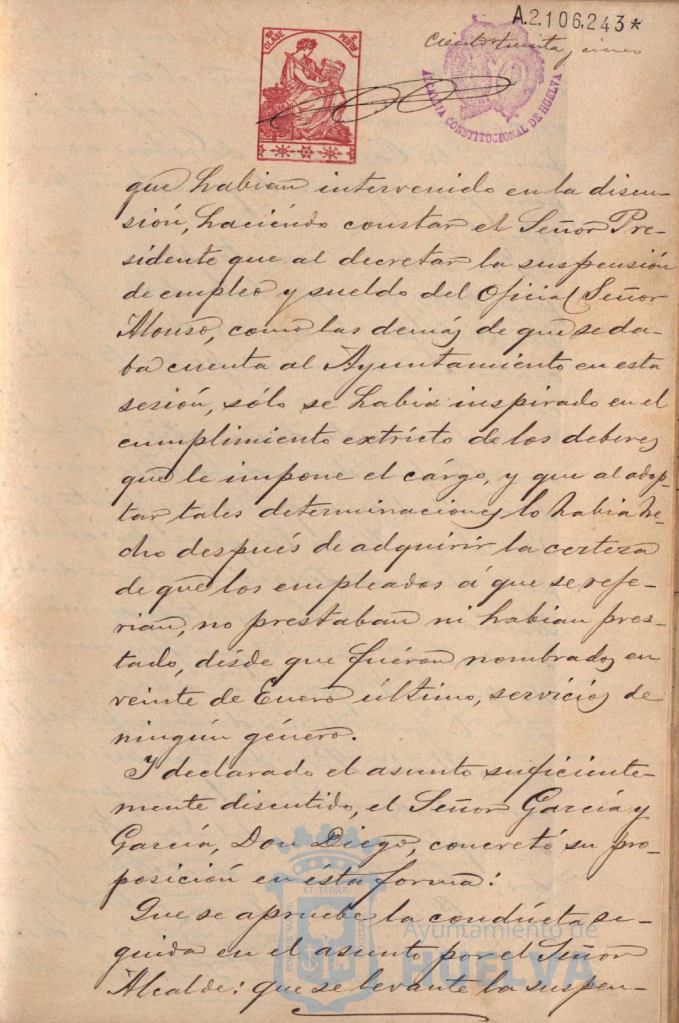 A.2.106.243*
Ciento treinta y cinco
CLASE
PESETAS
ALCALDIA CONSTITUCIONAL DE HUELVA
que habian intervenido en la discu-
sión, haciéndo constar el Señor Pre-
sidente que al decretar la suspensión
de empleo y sueldo del Oficial Señor
Alonso, como las demás de que se da-
ba cuenta al Ayuntamiento en esta
sesión, sólo se habia inspirado en el
cumplimiento extricto de los deberes
que le impone el cárgo, y que al adop-
tar tales determinaciones lo habia he-
cho después de adquirir la certeza
de que los empleados á que se refe-
rian, no prestaban ni habian pres-
tado, désde que fuéron nombrados en
veinte de Enero último, servicios de
ningún género.
Y declarado el asunto suficiente-
mente discutido, el Señor García y
García, Don Diego, concretó su pro-
posición en ésta forma:
Que se apruebe la condúcta se-
guida en el asunto por el Señor
Alcalde: que se levante la suspen-
Ayuntamiento de
HUELVA